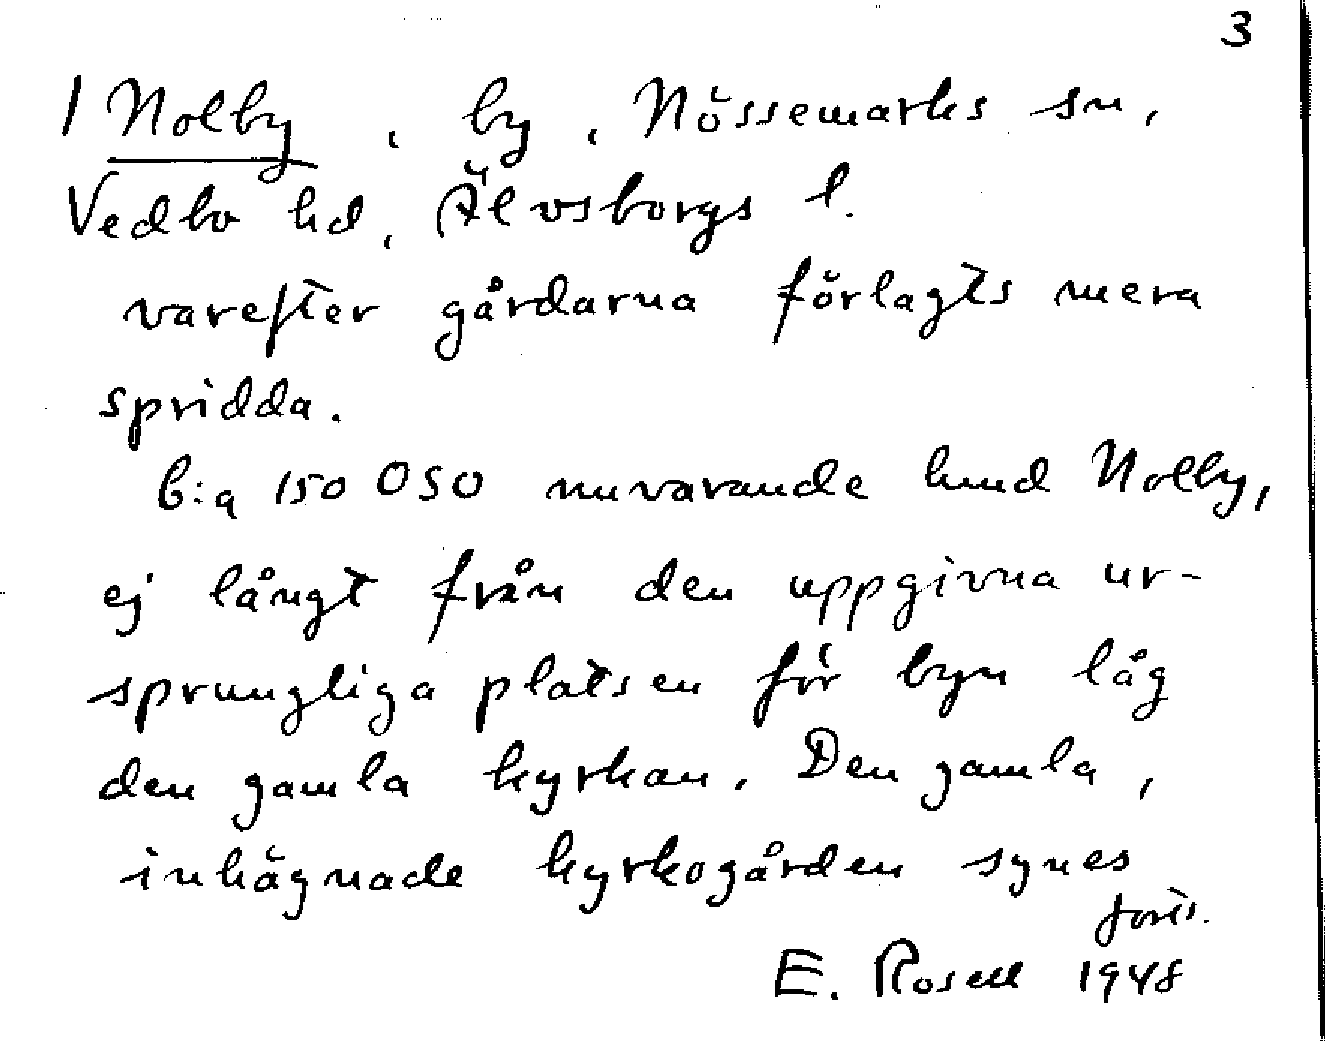 3
1 Nolby, by, Nössemarks sn,
Vedbo hd, Älvsborgs l.
varefter gårdarna förlagts mera
spridda.
C:a 150 OSO nuvarande hmd Nolby,
ej långt från den uppgivna ur-
sprungliga platsen för byn låg
den gamla kyrkan. Den gamla,
inhägnade kyrkogården synes
forts.
E. Rosell 1948